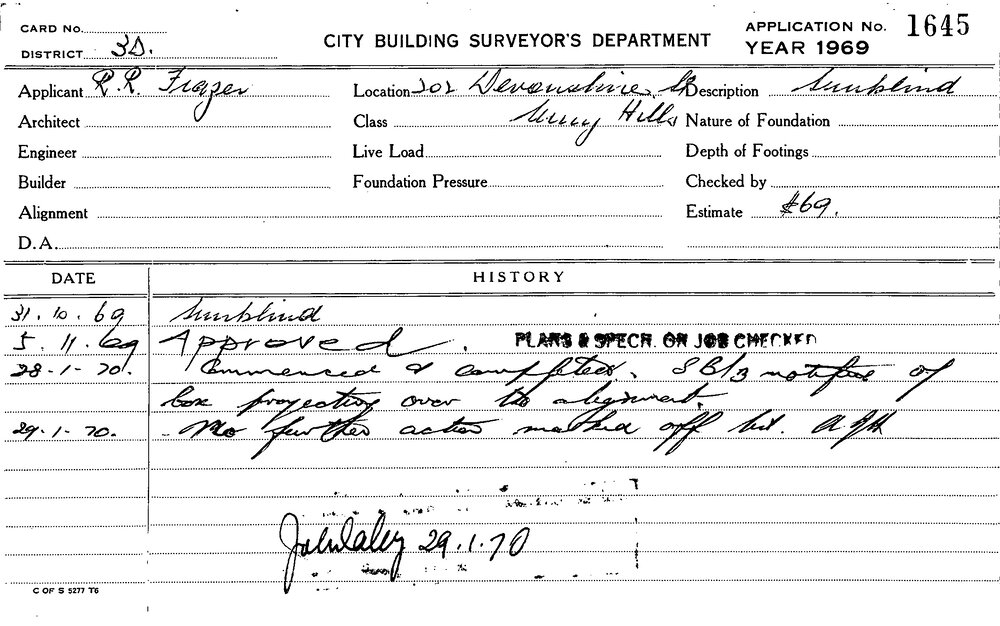 CARD No.
DISTRICT 3D.
CITY BUILDING SURVEYOR'S DEPARTMENT
APPLICATION No. 1645
YEAR 1969
Applicant R.R. Frazer
Location 202 Devonshire St
Description Sunblind
Architect
Class Surry Hills
Nature of Foundation
Engineer
Live Load
Depth of Footings
Builder
Foundation Pressure
Checked by
Alignment
Estimate £69.
D.A.
DATE HISTORY
31.10.69 Sunblind
5.11.69 Approved. PLANS & SPECN. ON JOB CHECKED
28-1-70. Commenced & completed. SBI3 notified of
box projecting over the alignment.
29-1-70. - No further action marked off
29.1.70
C OF S 5277 T6